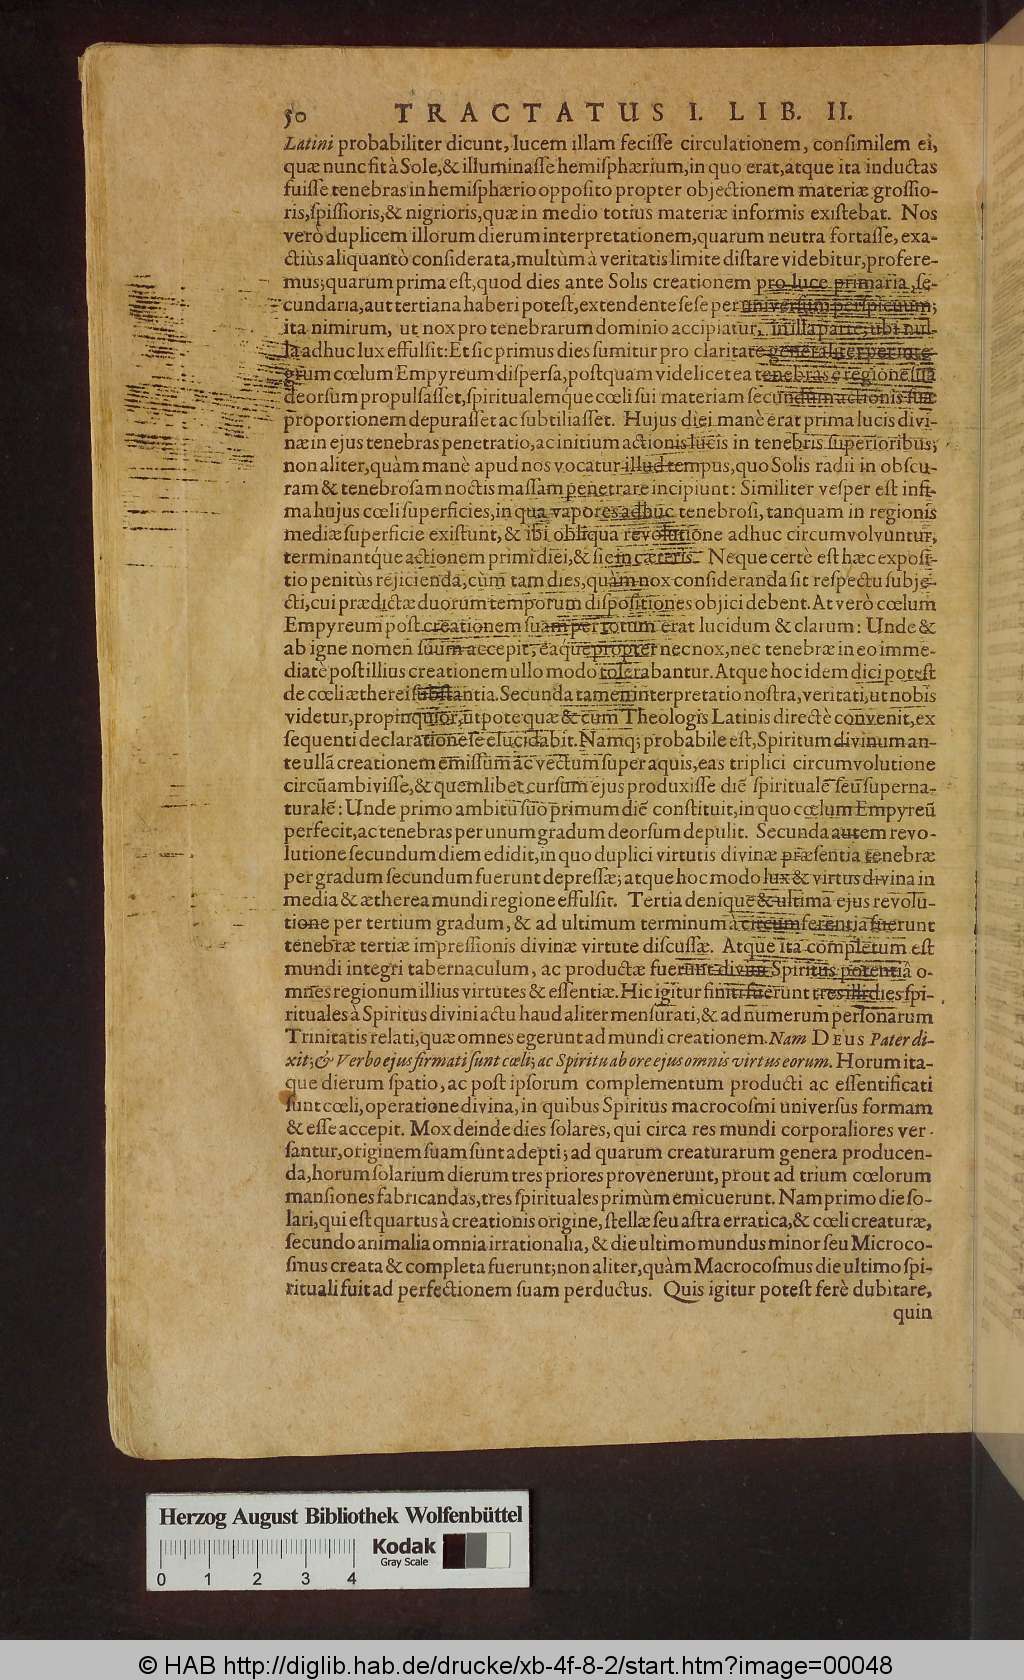 50 TRACTATUS I. LIB. II.
Latini probabiliter dicunt, lucem illam fecisse circulationem, consimilem ei,
quæ nunc fit à Sole, & illuminasse hemisphærium, in quo erat, atque ita inductas
fuisse tenebras in hemisphærio opposito propter objectionem materiæ grossio-
ris, spissioris, & nigrioris, quæ in medio totius materiæ informis existebat. Nos
verò duplicem illorum dierum interpretationem, quarum neutra fortasse, exa-
ctiùs aliquantò considerata, multùm à veritatis limite distare videbitur, profere-
mus; quarum prima est, quod dies ante Solis creationem pro luce primaria, se-
cundaria, aut tertiana haberi potest, extendente sese per universum perspicuum;
ita nimirum, ut nox pro tenebrarum dominio accipiatur, in illa parte, ubi nul-
la adhuc lux effulsit: Et sic primus dies sumitur pro claritate generaliter per inte-
grum cœlum Empyreum dispersa, postquam videlicet ea tenebras e regione sua
deorsum propulsasset, spiritualemque cœli sui materiam secundum actionis suæ
proportionem depurasset ac subtiliasset. Hujus diei manè erat prima lucis divi-
næ in ejus tenebras penetratio, ac initium actionis lucis in tenebris superioribus;
non aliter, quàm manè apud nos vocatur illud tempus, quo Solis radii in obscu-
ram & tenebrosam noctis massam penetrare incipiunt: Similiter vesper est infi-
ma hujus cœli superficies, in qua vapores adhuc tenebrosi, tanquam in regionis
mediæ superficie existunt, & ibi obliqua revolutione adhuc circumvolvuntur,
terminantque actionem primi diei, & sic in cæteris. Neque certè est hæc exposi-
tio penitùs rejicienda, cùm tam dies, quàm nox consideranda sit respectu subje-
cti, cui prædictæ duorum temporum dispositiones objici debent. At verò cœlum
Empyreum post creationem suam per totum erat lucidum & clarum: Unde &
ab igne nomen suum accepit, eaque propter nec nox, nec tenebræ in eo imme-
diatè post illius creationem ullo modo tolerabantur. Atque hoc idem dici potest
de cœli ætherei substantia. Secunda tamen interpretatio nostra, veritati, ut nobis
videtur, propinquior, utpote quæ & cum Theologis Latinis directè convenit, ex
sequenti declaratione se elucidabit. Namq; probabile est, Spiritum divinum an-
te ullā creationem emissum ac vectum super aquis, eas triplici circumvolutione
circū ambivisse, & quemlibet cursum ejus produxisse diē spiritualē seu superna-
turalē: Unde primo ambitu suo primum diē constituit, in quo cœlum Empyreū
perfecit, ac tenebras per unum gradum deorsum depulit. Secunda autem revo-
lutione secundum diem edidit, in quo duplici virtutis divinæ præsentia tenebræ
per gradum secundum fuerunt depressæ; atque hoc modo lux & virtus divina in
media & ætherea mundi regione effulsit. Tertia denique & ultima ejus revolu-
tione per tertium gradum, & ad ultimum terminum à circumferentia fuerunt
tenebræ tertiæ impressionis divinæ virtute discussæ. Atque ita completum est
mundi integri tabernaculum, ac productæ fuerunt divini Spiritus potentiâ o-
mnes regionum illius virtutes & essentiæ. Hic igitur finiti fuerunt tres illi dies spi-
rituales à Spiritus divini actu haud aliter mensurati, & ad numerum personarum
Trinitatis relati, quæ omnes egerunt ad mundi creationem. Nam DEUS Pater di-
xit; & Verbo ejus firmati sunt cœli; ac Spiritu ab ore ejus omnis virtus eorum. Horum ita-
que dierum spatio, ac post ipsorum complementum producti ac essentificati
sunt cœli, operatione divina, in quibus Spiritus macrocosmi universus formam
& esse accepit. Mox deinde dies solares, qui circa res mundi corporaliores ver-
santur, originem suam sunt adepti; ad quarum creaturarum genera producen-
da, horum solarium dierum tres priores provenerunt, prout ad trium cœlorum
mansiones fabricandas, tres spirituales primùm emicuerunt. Nam primo die so-
lari, qui est quartus à creationis origine, stellæ seu astra erratica, & cœli creaturæ,
secundo animalia omnia irrationalia, & die ultimo mundus minor seu Microco-
smus creata & completa fuerunt; non aliter, quàm Macrocosmus die ultimo spi-
rituali fuit ad perfectionem suam perductus. Quis igitur potest ferè dubitare,
quin
Herzog August Bibliothek Wolfenbüttel
Kodak
Gray Scale
0 1 2 3 4
© HAB http://diglib.hab.de/drucke/xb-4f-8-2/start.htm?image=00048